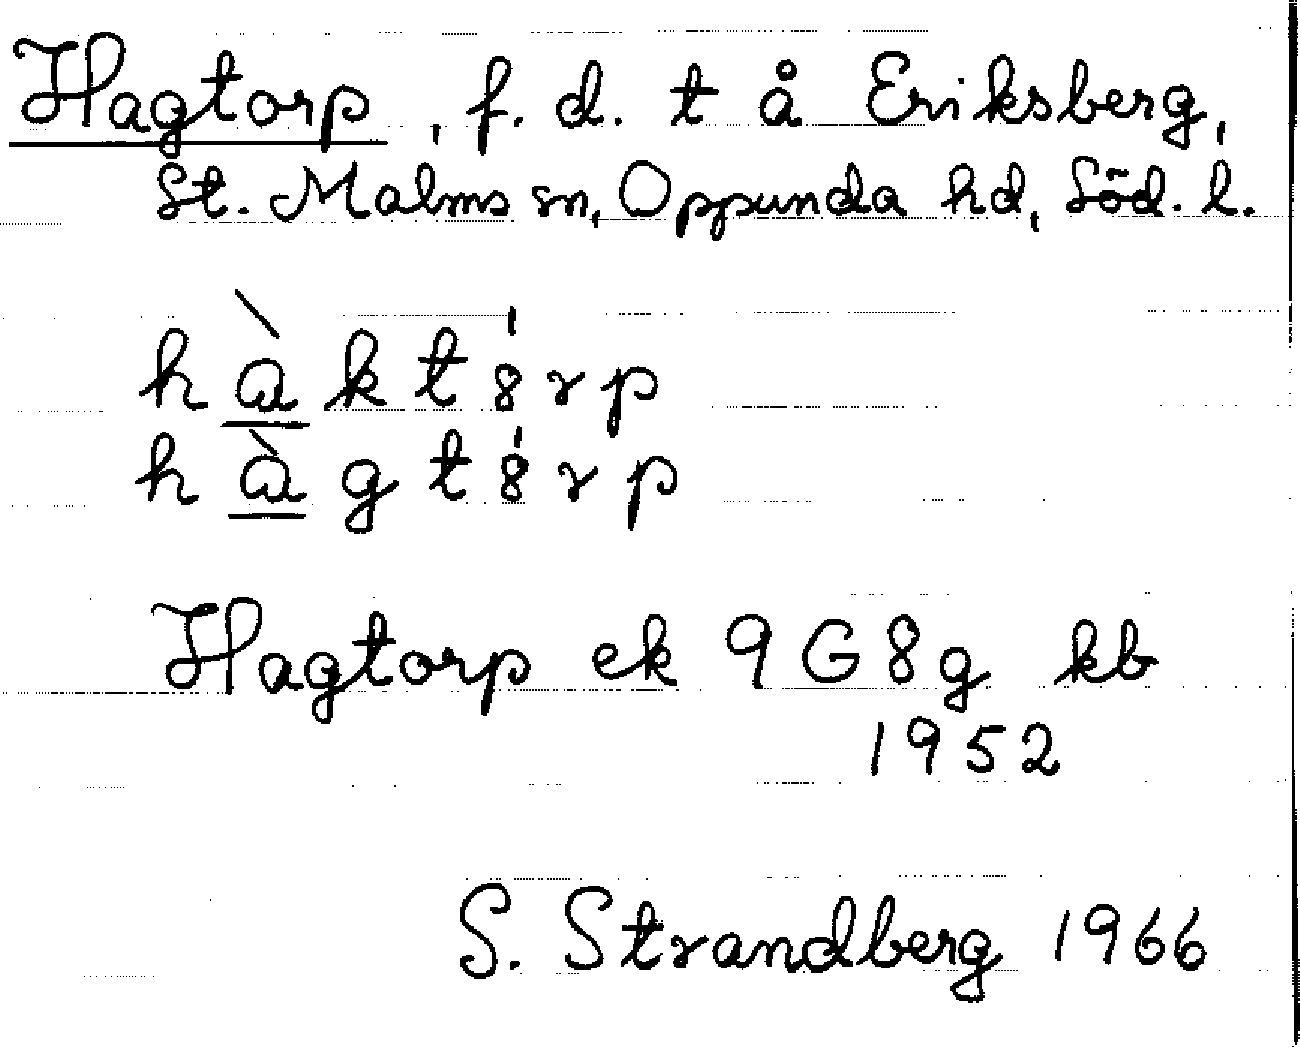 Hagtorp, f. d. t å Eriksberg,
St. Malms sn, Oppunda hd, Söd. l.
hàkt8́rp
hàgt8́rp
Hagtorp ek 9G8g kb
1952
S. Strandberg 1966